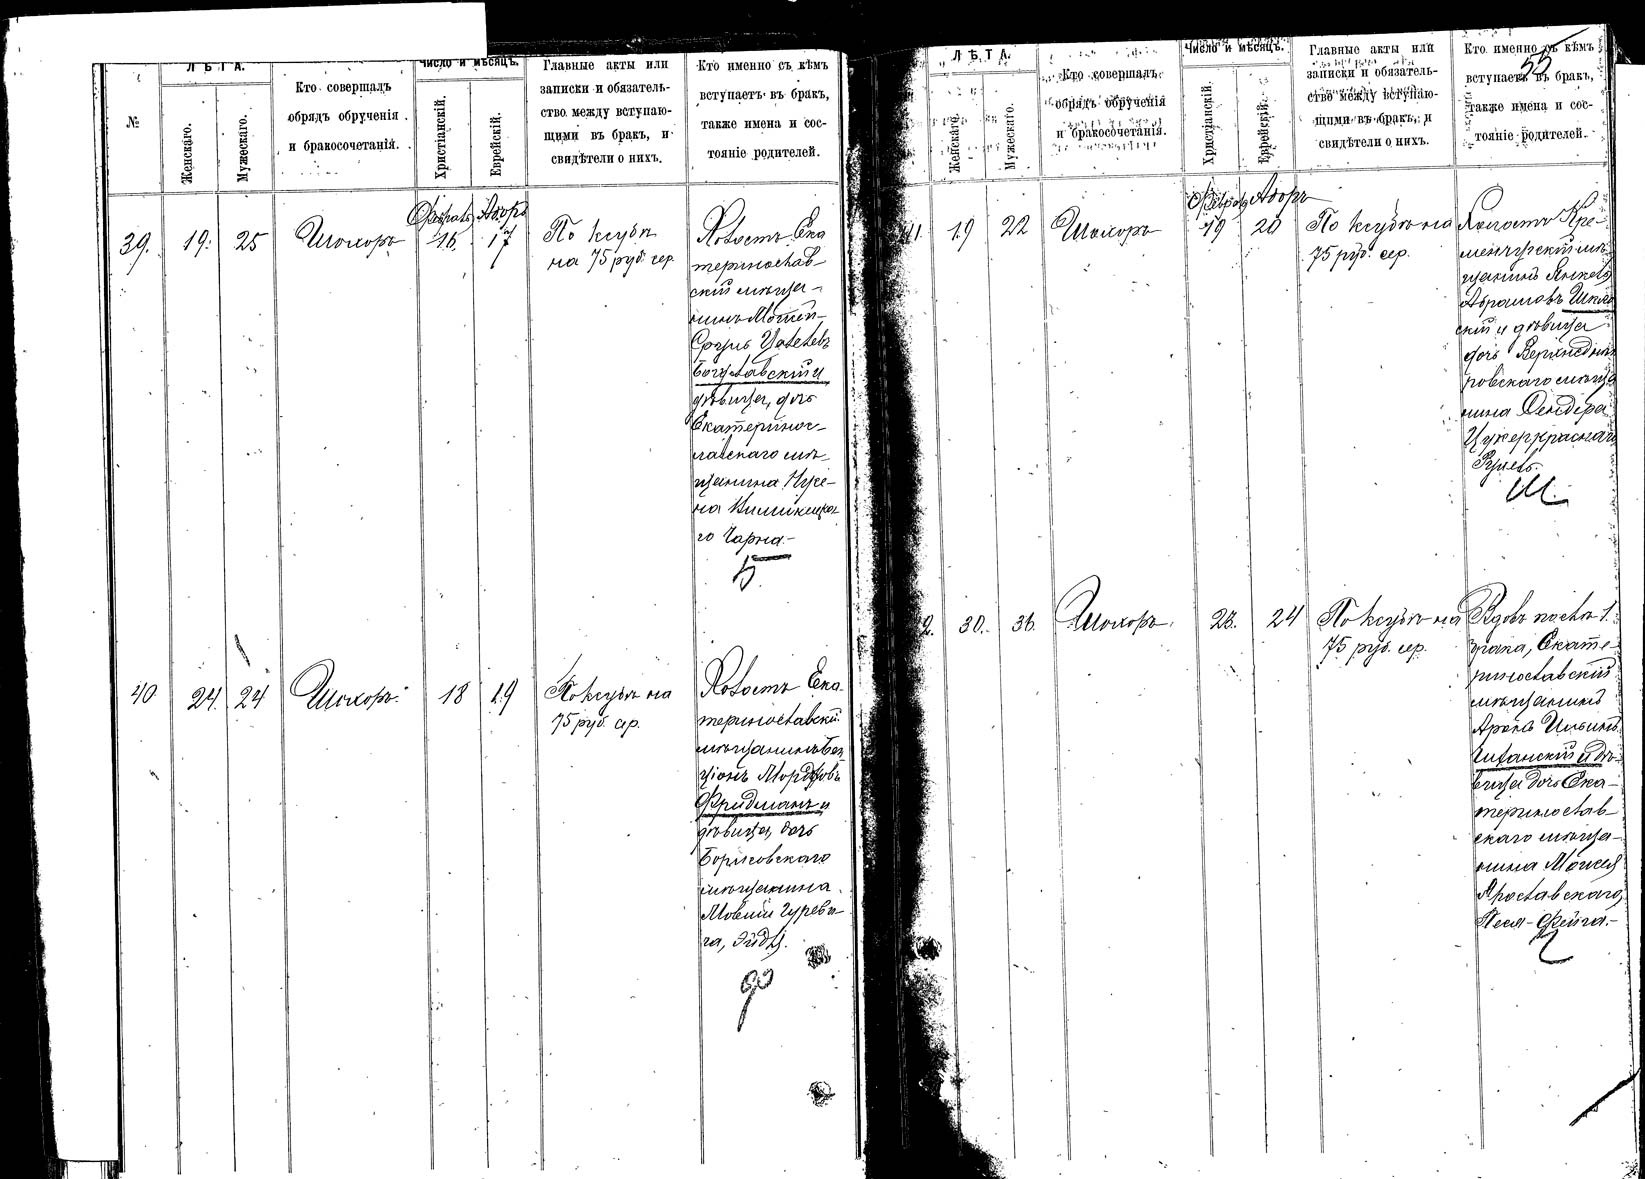 №
ЛѢТА.
Женскаго.
Мужескаго.
Кто совершалъ
обрядъ обрученія
и бракосочетанія.
Число и мѣсяцъ.
Христіанскій.
Еврейскій.
Главные акты или
записки и обязатель-
ство между вступаю-
щими въ бракъ, и
свидѣтели о нихъ.
Кто именно съ кѣмъ
вступаетъ въ бракъ,
также имена и сос-
тояніе родителей.
39.
19.
25
Шохоръ
Февраль
16
Адоръ
17
По ксубѣ
на 75 руб. сер.
Холостъ Ека
теринослав-
скій мѣща-
нинъ
Сруль
Богуславскій и
дѣвица, дочь
Екатеринос-
лавскаго мѣ-
щанина Нухе-
на
го Чарна.-
Б.
40
24
24
Шохоръ
18
19
По ксубѣ на
75 руб. сер.
Холостъ Ека-
теринославскій
мѣщанинъ Бен
ціонъ Мордховъ
Фридманъ и
дѣвица, дочь
Борисовскаго
мѣщанина
Мовши Гуреви-
ча, Эйдя.
Ф
55
ЛѢТА.
Женскаго.
Мужескаго.
Кто совершалъ
обрядъ обрученія
и бракосочетанія.
Число и мѣсяцъ.
Христіанскій.
Еврейскій.
Главные акты или
записки и обязатель-
ство между вступаю-
щими въ бракъ, и
свидѣтели о нихъ.
Кто именно съ кѣмъ
вступаетъ въ бракъ,
также имена и сос-
тояніе родителей.
41.
19
22
Шохоръ
Февраль
19
Адоръ
20
По ксубѣ на
75 руб. сер.
Холостъ Кре-
менчугскій мѣ-
щанинъ Янкель
Абрамовъ Шкло
скій и дѣвица
дочь Верхнеднѣп
ровскаго мѣща
нина Сендера
Цукеркраснаго
Ш.
2.
30.
36.
Шохоръ.
23.
24
По ксубѣ на
75 руб. сер.
Вдовъ послѣ 1.
брака, Екате-
ринославскій
мѣщанинъ
Аронъ
и дѣ-
вица дочь Ека-
теринослав-
скаго мѣща-
нина Моисея
Ярославскаго,
Песя-Фейга.-